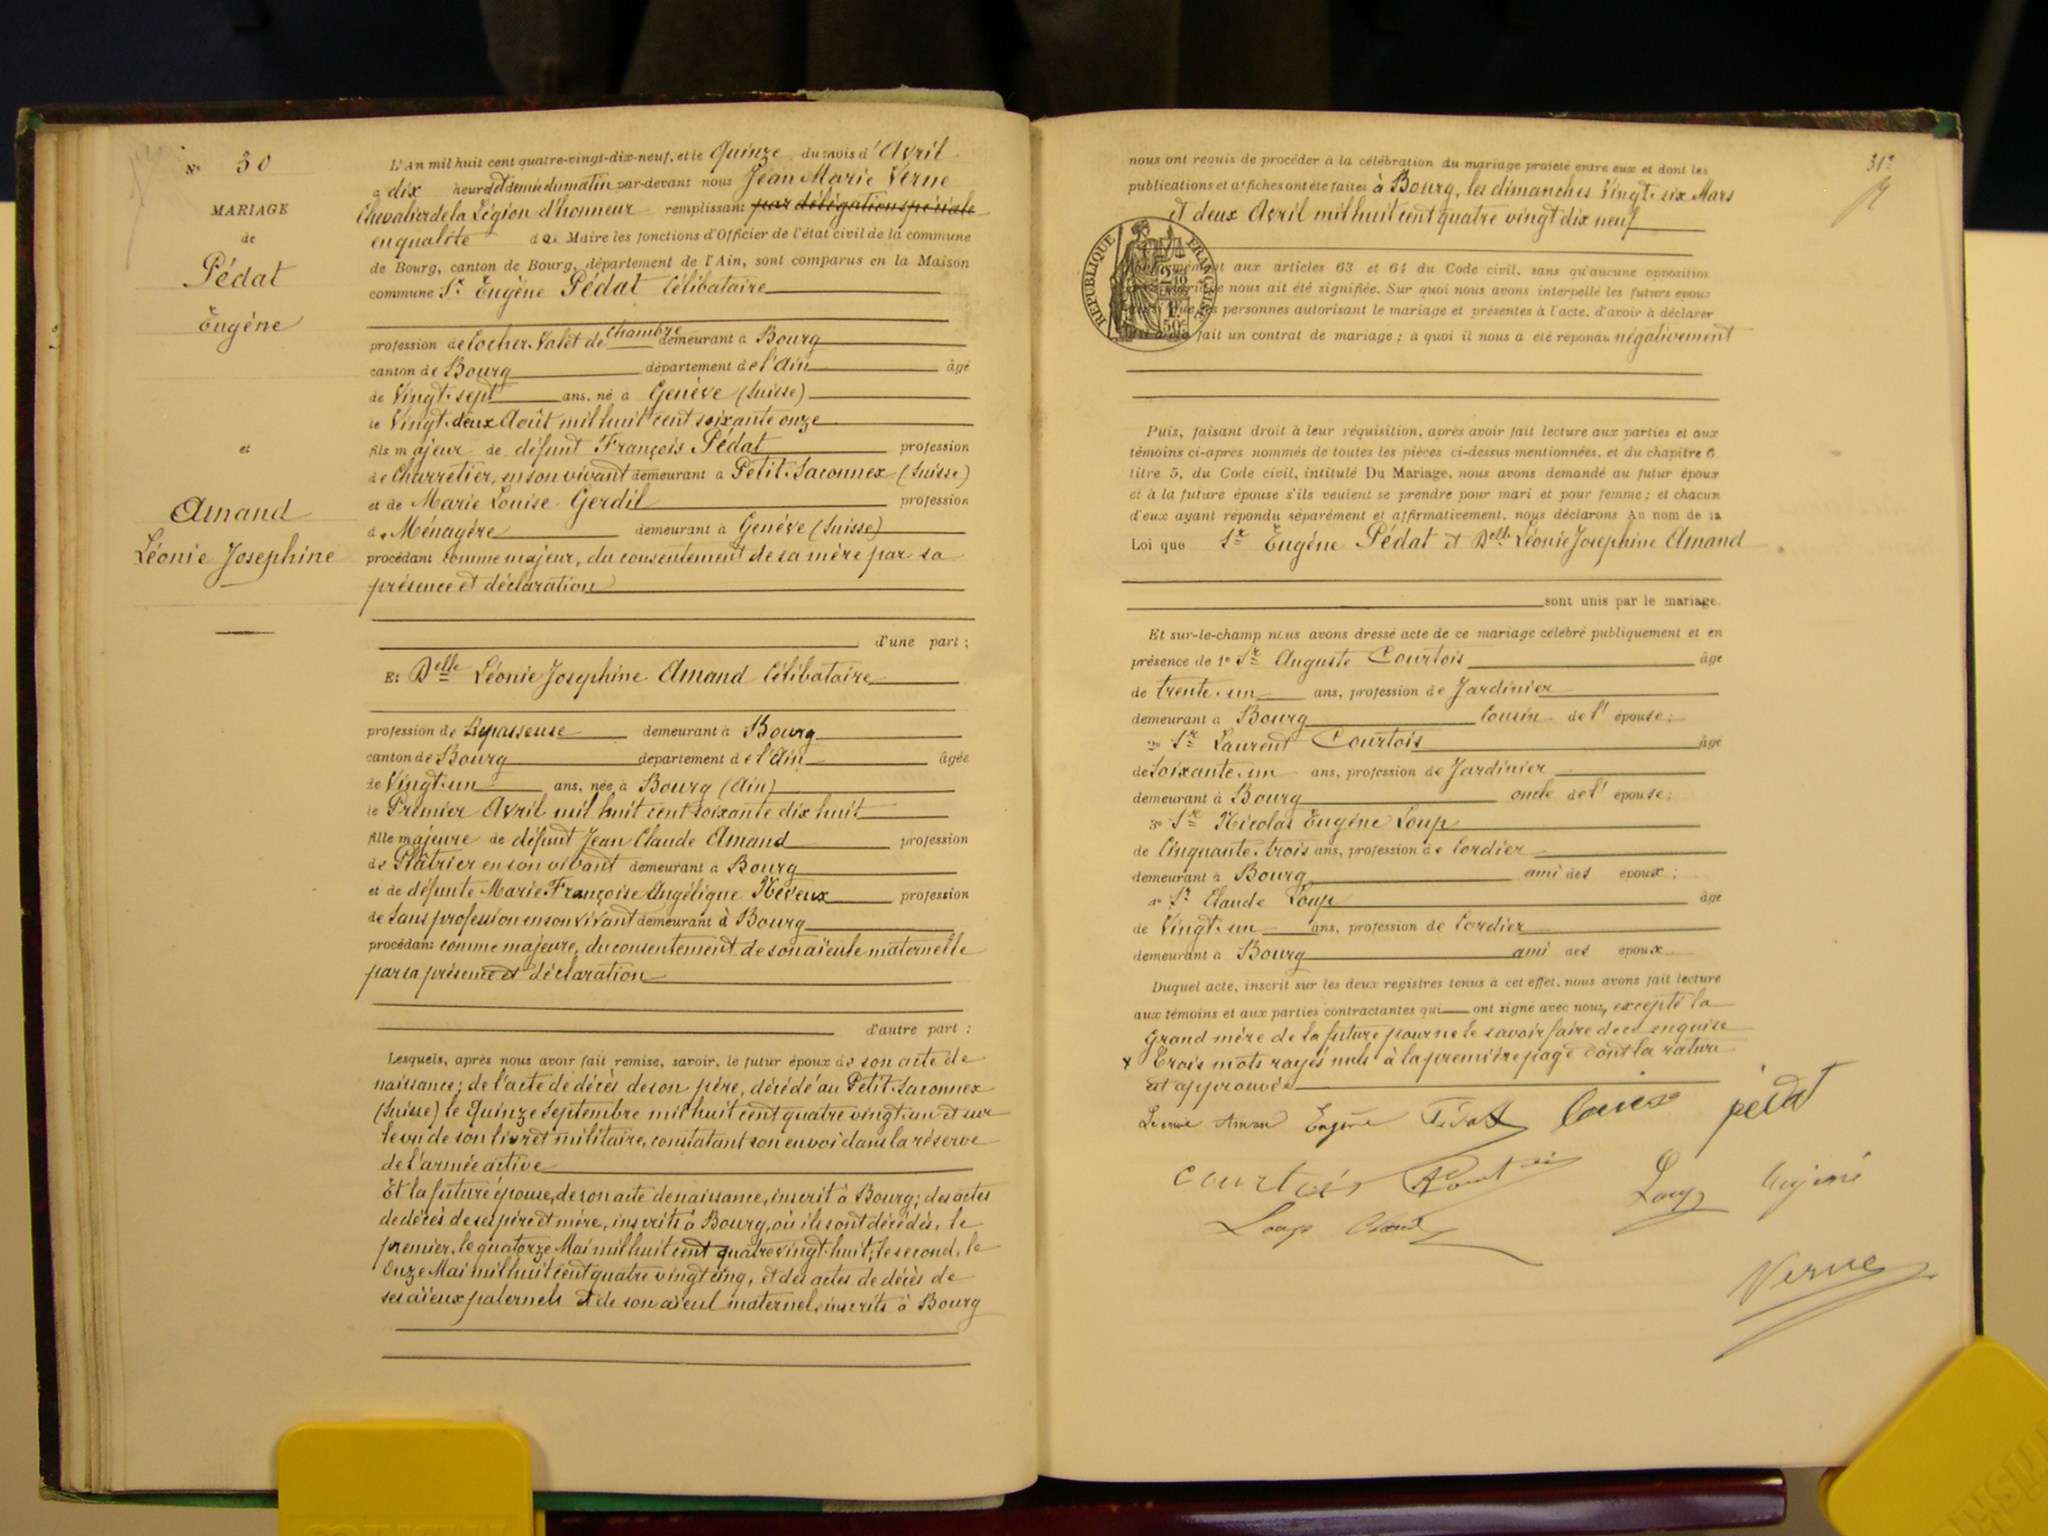 N° 30
MARIAGE
de
Pédat
Eugène
et
Amand
Léonie Josephine
L'An mil huit cent quatre-vingt-dix-neuf, et le Quinze du mois d'Avril
à dix heures et demie du matin par-devant nous Jean Marie Verne
Chevalier de la Légion d'honneur remplissant par délégation spéciale
en qualité de Maire les fonctions d'Officier de l'état civil de la commune
de Bourg, canton de Bourg, département de l'Ain, sont comparus en la Maison
commune Sr Eugène Pédat Célibataire
profession de Cocher Valet de Chambre demeurant à Bourg
canton de Bourg département de l'Ain âgé
de Vingt-sept ans, né à Genève (Suisse)
le Vingt-deux Août mil huit cent soixante onze
fils majeur de défunt François Pédat profession
de Charretier, en son vivant demeurant à Petit-Saconnex (Suisse)
et de Marie Louise Gerdil profession
de Ménagère demeurant à Genève (Suisse)
procédant comme majeur, du consentement de sa mère par sa
présence et déclaration
d'une part ;
Et Delle Léonie Josephine Amand Célibataire
profession de Repasseuse demeurant à Bourg
canton de Bourg département de l'Ain âgée
de Vingt-un ans, née à Bourg (Ain)
le Premier Avril mil huit cent soixante dix huit
fille majeure de défunt Jean Claude Amand profession
de Plâtrier en son vivant demeurant à Bourg
et de défunte Marie Françoise Angélique Neveux profession
de Sans profession en son vivant demeurant à Bourg
procédant comme majeure, du consentement de son aïeule maternelle
par sa présence et déclaration
d'autre part ;
Lesquels, après nous avoir fait remise, savoir, le futur époux de son acte de
naissance ; de l'acte de décès de son père, décédé au Petit-Saconnex
(Suisse) le Quinze Septembre mil huit cent quatre vingt-un et sur
le vu de son livret militaire, constatant son envoi dans la réserve
de l'armée active
Et la future épouse, de son acte de naissance, inscrit à Bourg ; des actes
de décès de ses père et mère, inscrits à Bourg, où ils sont décédés, le
premier, le quatorze Mai mil huit cent quatre vingt-huit ; le second, le
Onze Mai mil huit cent quatre vingt cinq, et des actes de décès de
ses aïeux paternels et de son aïeul maternel, inscrits à Bourg
31e
nous ont requis de procéder à la célébration du mariage projeté entre eux et dont les
publications et affiches ont été faites à Bourg, les dimanches Vingt-six Mars
et deux Avril mil huit cent quatre vingt dix neuf
RÉPUBLIQUE FRANÇAISE
aux articles 63 et 64 du Code civil, sans qu'aucune opposition
nous ait été signifiée. Sur quoi nous avons interpellé les futurs époux
personnes autorisant le mariage et présentes à l'acte, d'avoir à déclarer
fait un contrat de mariage ; à quoi il nous a été répondu négativement
Puis, faisant droit à leur réquisition, après avoir fait lecture aux parties et aux
témoins ci-après nommés de toutes les pièces ci-dessus mentionnées, et du chapitre 6
titre 5, du Code civil, intitulé Du Mariage, nous avons demandé au futur époux
et à la future épouse s'ils veulent se prendre pour mari et pour femme ; et chacun
d'eux ayant répondu séparément et affirmativement, nous déclarons Au nom de la
Loi que Sr Eugène Pédat et Delle Léonie Josephine Amand
sont unis par le mariage.
Et sur-le-champ nous avons dressé acte de ce mariage célébré publiquement et en
présence de 1° Sr Auguste Courtois âgé
de trente-un ans, profession de Jardinier
demeurant à Bourg Cousin de l'épouse ;
2° Sr Laurent Courtois âgé
de Soixante-un ans, profession de Jardinier
demeurant à Bourg oncle de l'épouse ;
3° Sr Nicolas Eugène Loup
de Cinquante-trois ans, profession de Cordier
demeurant à Bourg ami des époux ;
4° Sr Claude Loup âgé
de Vingt-un ans, profession de Cordier
demeurant à Bourg ami des époux
Duquel acte, inscrit sur les deux registres tenus à cet effet, nous avons fait lecture
aux témoins et aux parties contractantes qui ont signé avec nous, excepté la
Grand mère de la future pour ne le savoir faire de ce enquise
Trois mots rayés nuls à la première page dont la rature
est approuvée
Eugène Pédat Louise pédat
Courtois
Loup Eugène
Loup Claude
Verne